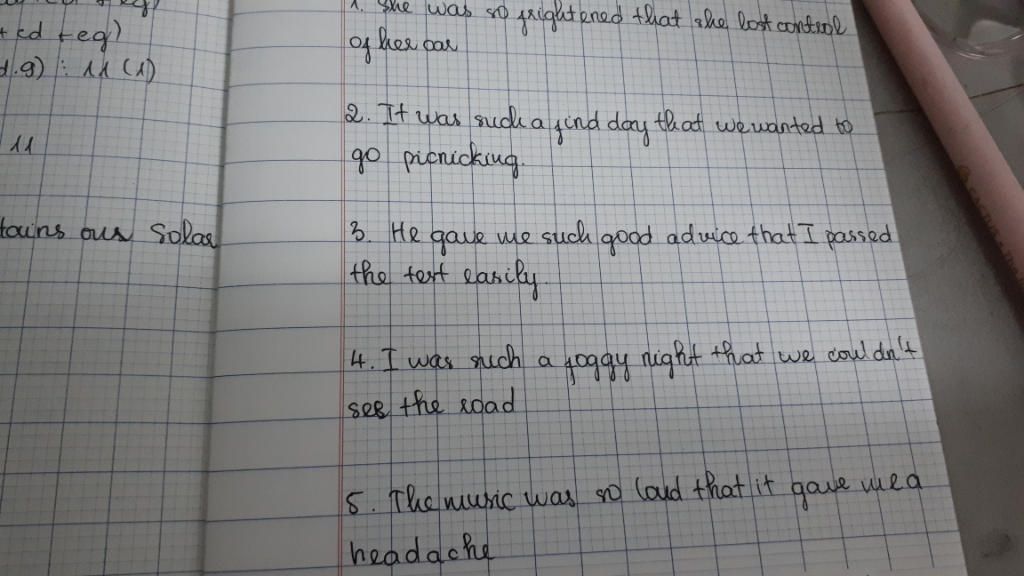 + cd + eg)
d.g) : 11 (1)
11
tains our Solar
1. She was so frightened that she lost control
of her car
2. It was such a find day that we wanted to
go picnicking.
3. He gave me such good advice that I passed
the test easily.
4. I was such a foggy night that we couldn't
see the road
5. The music was so loud that it gave me a
headache